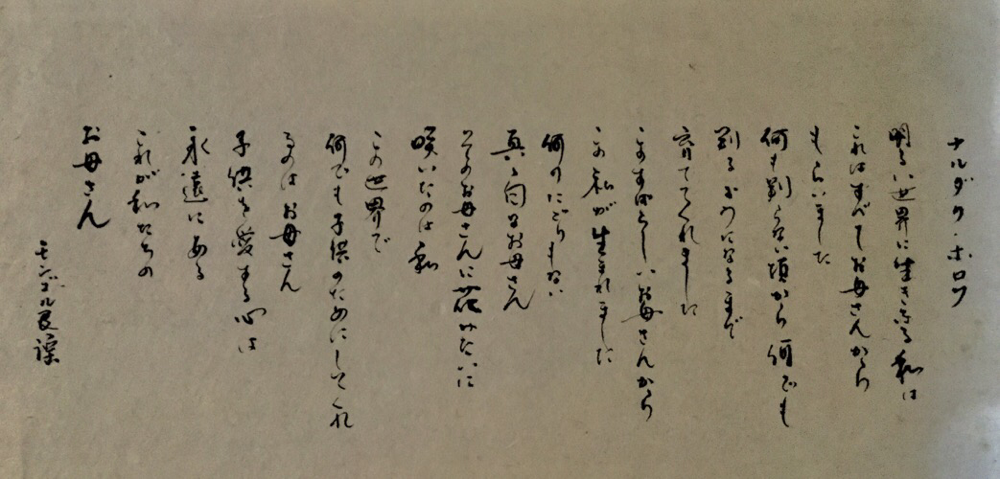 ナルダク・ホロツ
明るい世界に生きる私は
これはすべてお母さんから
もらいました
何も判らない頃から何でも
判るようになるまで
育ててくれました
このすばらしいお母さんから
この私が生まれました
何のにごりもない
真のお母さん
そのお母さんに花みたいに
咲いたのは私
この世界で
何でも子供のためにしてくれ
るのはお母さん
子供を愛する心は
永遠にある
これが私たちの
お母さん
モンゴル民謡